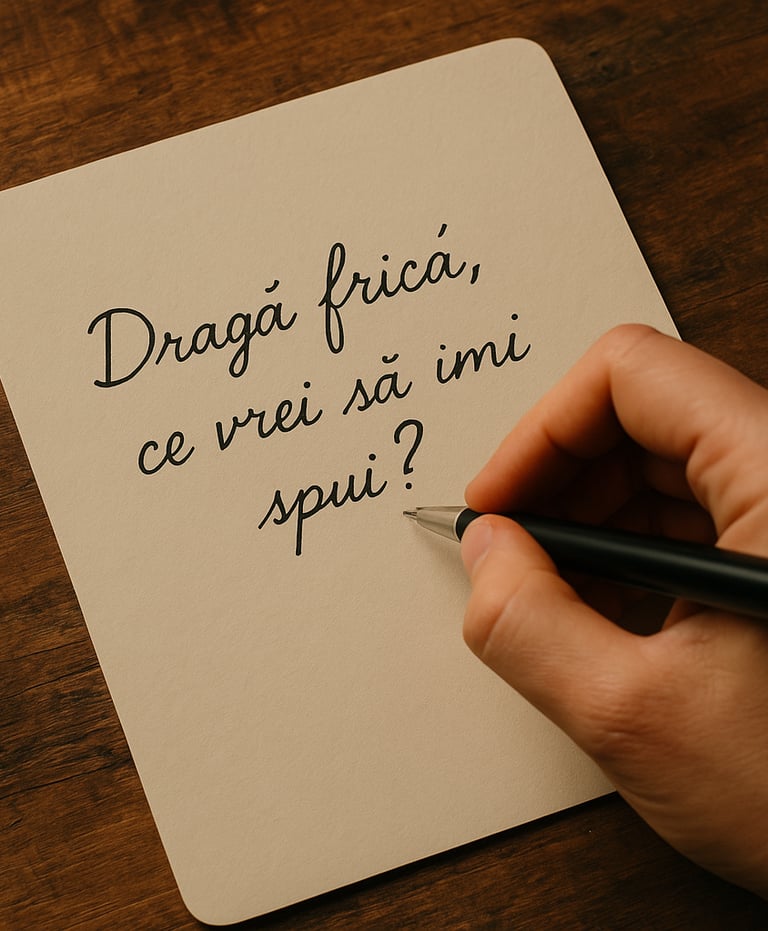 Dragá fricá,
ce vrei să imi
spui?